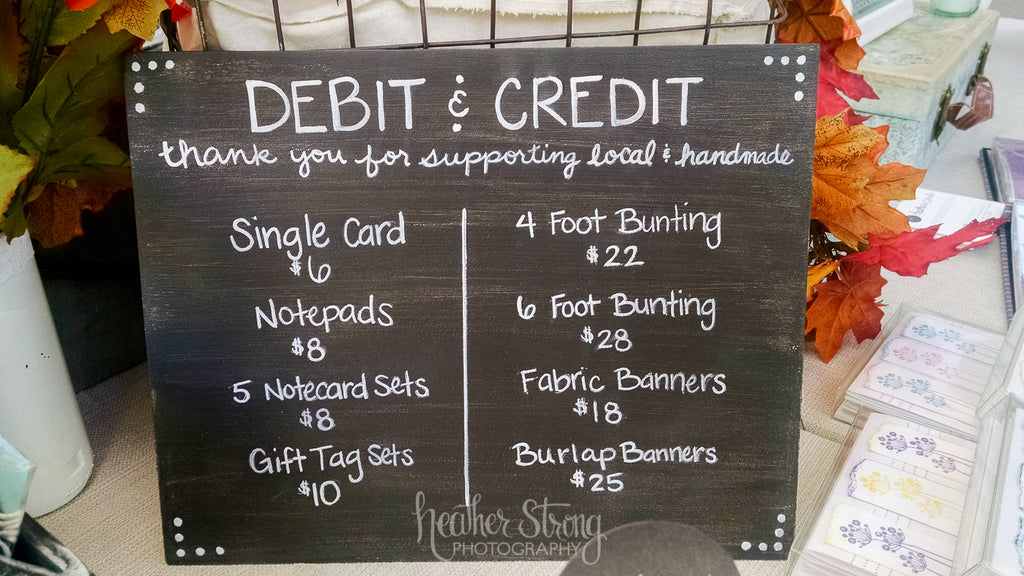 DEBIT & CREDIT
thank you for supporting local & handmade
Single Card
$6
Notepads
$8
5 Notecard Sets
$8
Gift Tag Sets
$10
4 Foot Bunting
$22
6 Foot Bunting
$28
Fabric Banners
$18
Burlap Banners
$25
heather Strong
PHOTOGRAPHY